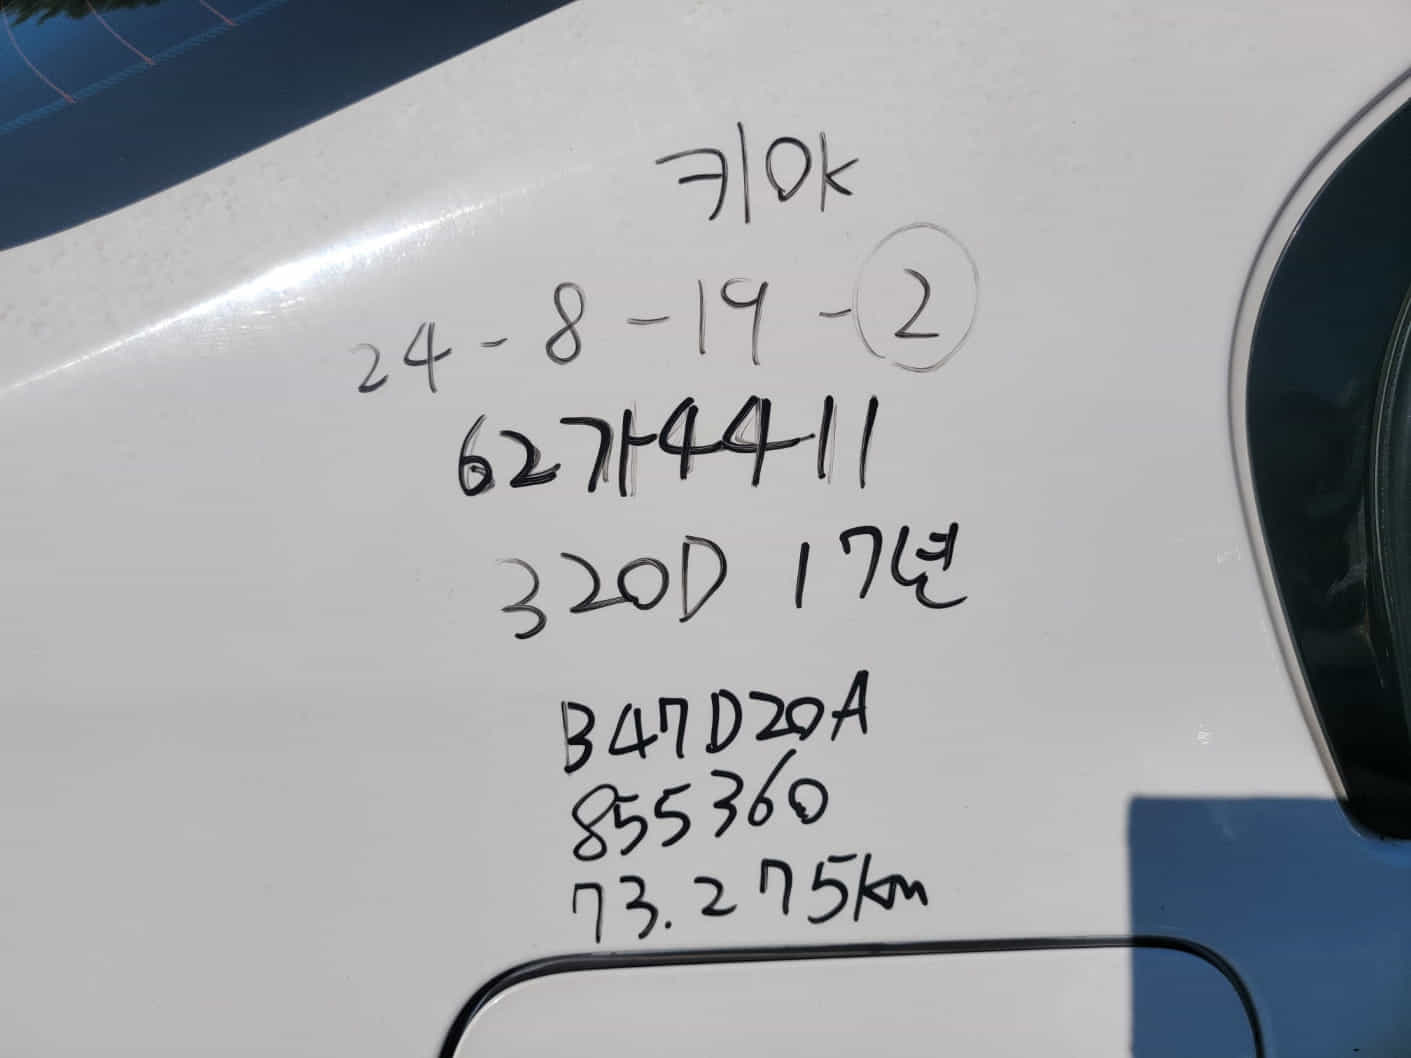 키OK
24-8-19-2
62가4411
320D 17년
B47D20A
855360
73.275km